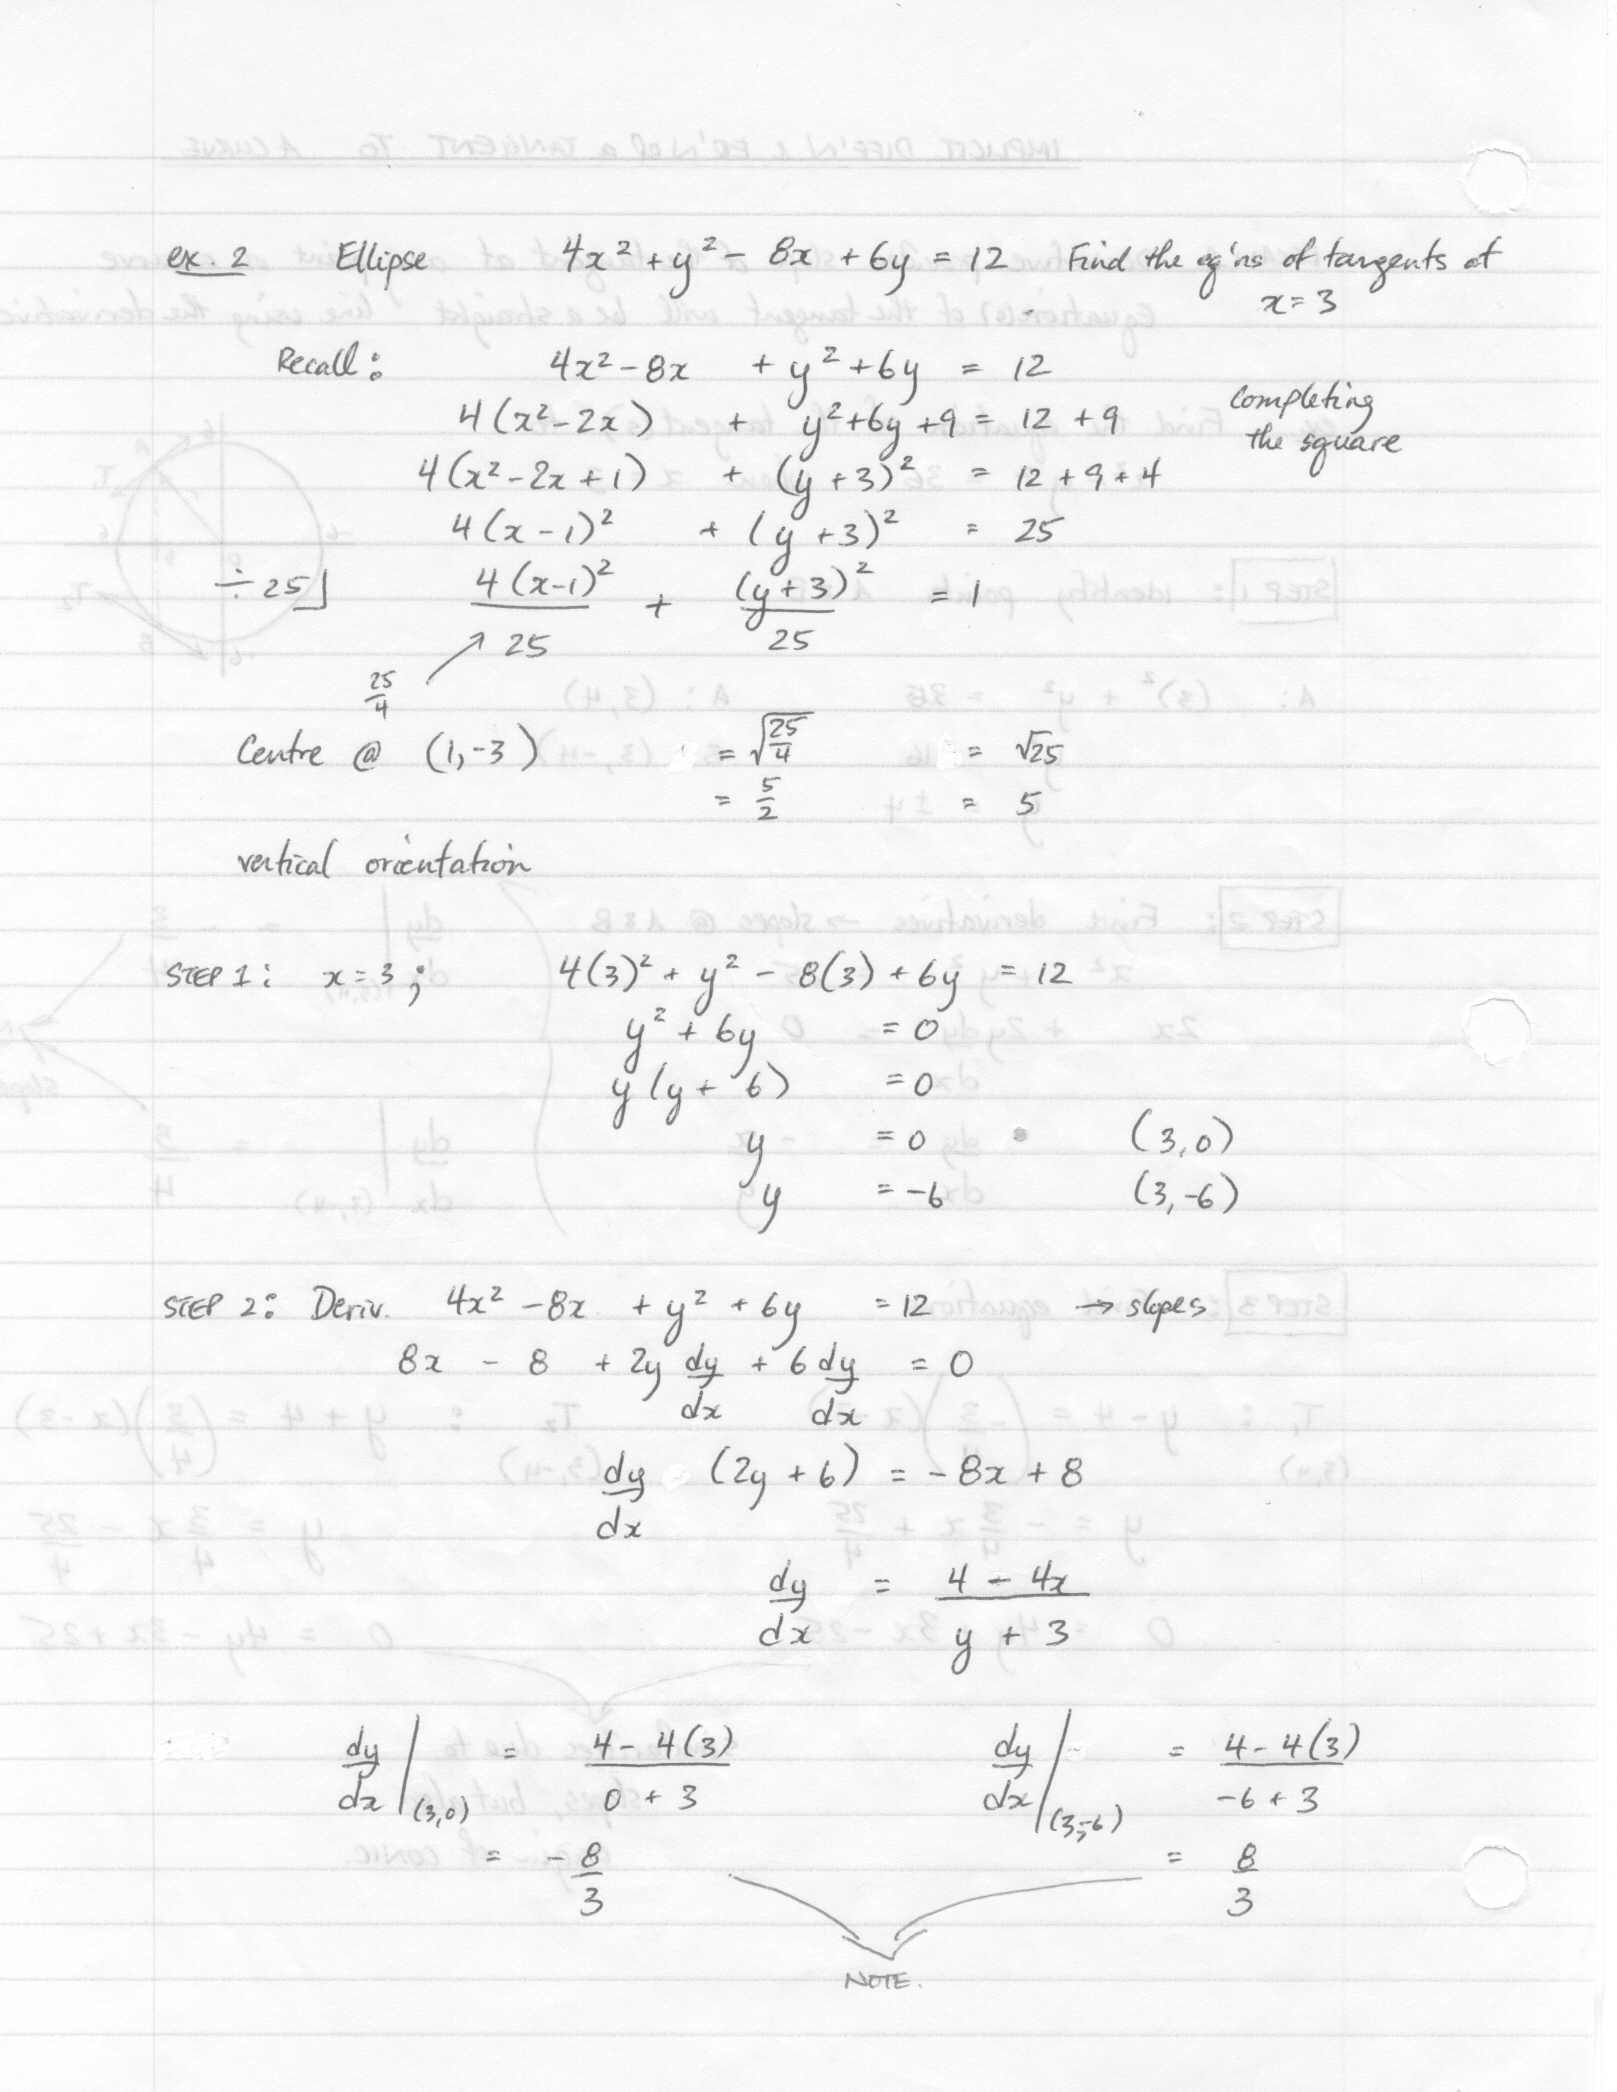 ex. 2 Ellipse 4x² + y² - 8x + 6y = 12 Find the eq'ns of tangents at
x = 3
Recall: 4x² - 8x + y² + 6y = 12
4(x² - 2x) + y² + 6y + 9 = 12 + 9 completing
the square
4(x² - 2x + 1) + (y + 3)² = 12 + 9 + 4
4(x - 1)² + (y + 3)² = 25
÷ 25⌋ 4(x-1)²/25 + (y+3)²/25 = 1
25/4
Centre @ (1, -3) = √(25/4) = √25
= 5/2 = 5
vertical orientation
STEP 1: x = 3; 4(3)² + y² - 8(3) + 6y = 12
y² + 6y = 0
y(y + 6) = 0
y = 0 (3, 0)
y = -6 (3, -6)
STEP 2: Deriv. 4x² - 8x + y² + 6y = 12 → slopes
8x - 8 + 2y dy/dx + 6 dy/dx = 0
dy/dx (2y + 6) = -8x + 8
dy/dx = (4 - 4x)/(y + 3)
dy/dx |(3,0) = (4 - 4(3))/(0 + 3) dy/dx |(3,-6) = (4 - 4(3))/(-6 + 3)
= -8/3 = 8/3
NOTE.